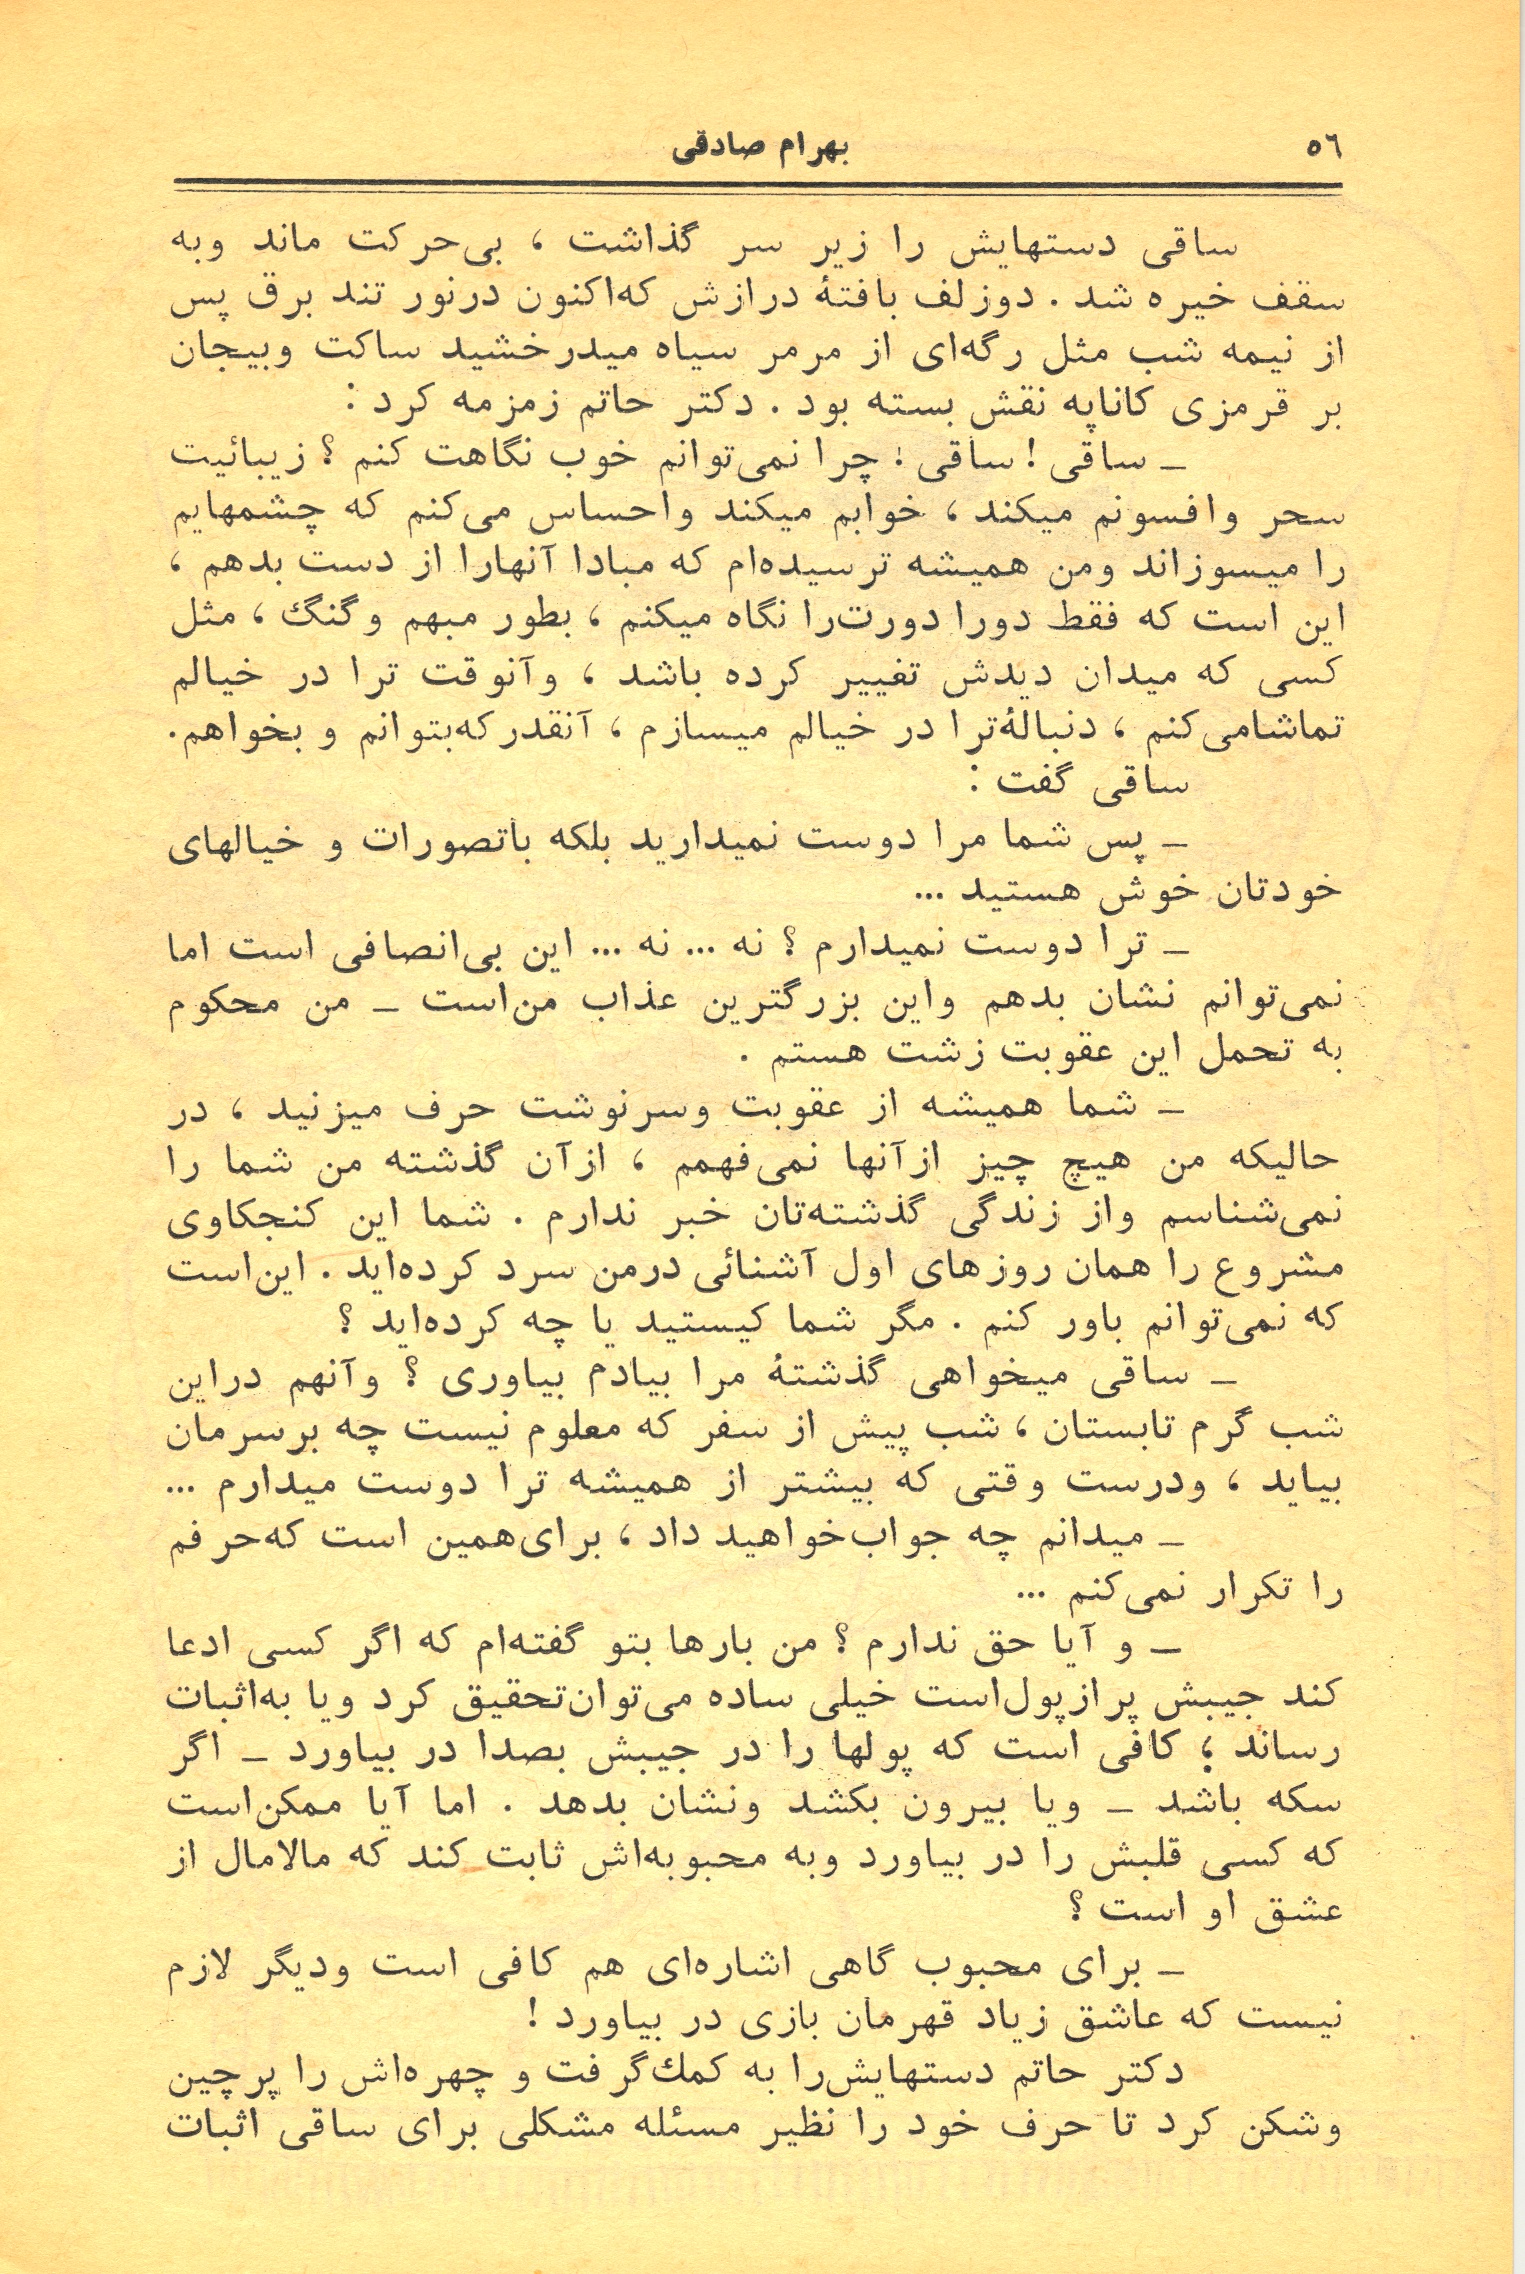 ٥٦
بهرام صادقی
ساقی دستهایش را زیر سر گذاشت ، بی‌حرکت ماند وبه
سقف خیره شد . دوزلف بافتهٔ درازش که‌اکنون درنور تند برق پس
از نیمه شب مثل رگه‌ای از مرمر سیاه میدرخشید ساکت وبیجان
بر قرمزی کاناپه نقش بسته بود . دکتر حاتم زمزمه کرد :
ـ ساقی ! ساقی ! چرا نمی‌توانم خوب نگاهت کنم ؟ زیبائیت
سحر وافسونم میکند ، خوابم میکند واحساس می‌کنم که چشمهایم
را میسوزاند ومن همیشه ترسیده‌ام که مبادا آنهارا از دست بدهم ،
این است که فقط دورا دورت‌را نگاه میکنم ، بطور مبهم وگنگ ، مثل
کسی که میدان دیدش تغییر کرده باشد ، وآنوقت ترا در خیالم
تماشامی‌کنم ، دنبالهٔ‌ترا در خیالم میسازم ، آنقدرکه‌بتوانم و بخواهم.
ساقی گفت :
ـ پس شما مرا دوست نمیدارید بلکه باتصورات و خیالهای
خودتان خوش هستید ...
ـ ترا دوست نمیدارم ؟ نه ... نه ... این بی‌انصافی است اما
نمی‌توانم نشان بدهم واین بزرگترین عذاب من‌است ـ من محکوم
به تحمل این عقوبت زشت هستم .
ـ شما همیشه از عقوبت وسرنوشت حرف میزنید ، در
حالیکه من هیچ چیز ازآنها نمی‌فهمم ، ازآن گذشته من شما را
نمی‌شناسم واز زندگی گذشته‌تان خبر ندارم . شما این کنجکاوی
مشروع را همان روزهای اول آشنائی درمن سرد کرده‌اید . این‌است
که نمی‌توانم باور کنم . مگر شما کیستید یا چه کرده‌اید ؟
ـ ساقی میخواهی گذشتهٔ مرا بیادم بیاوری ؟ وآنهم دراین
شب گرم تابستان ، شب پیش از سفر که معلوم نیست چه برسرمان
بیاید ، ودرست وقتی که بیشتر از همیشه ترا دوست میدارم ...
ـ میدانم چه جواب‌خواهید داد ، برای‌همین است که‌حرفم
را تکرار نمی‌کنم ...
ـ و آیا حق ندارم ؟ من بارها بتو گفته‌ام که اگر کسی ادعا
کند جیبش پرازپول‌است خیلی ساده می‌توان‌تحقیق کرد ویا به‌اثبات
رساند ؛ کافی است که پولها را در جیبش بصدا در بیاورد ـ اگر
سکه باشد ـ ویا بیرون بکشد ونشان بدهد . اما آیا ممکن‌است
که کسی قلبش را در بیاورد وبه محبوبه‌اش ثابت کند که مالامال از
عشق او است ؟
ـ برای محبوب گاهی اشاره‌ای هم کافی است ودیگر لازم
نیست که عاشق زیاد قهرمان بازی در بیاورد !
دکتر حاتم دستهایش‌را به کمك‌گرفت و چهره‌اش را پرچین
وشکن کرد تا حرف خود را نظیر مسئله مشکلی برای ساقی اثبات